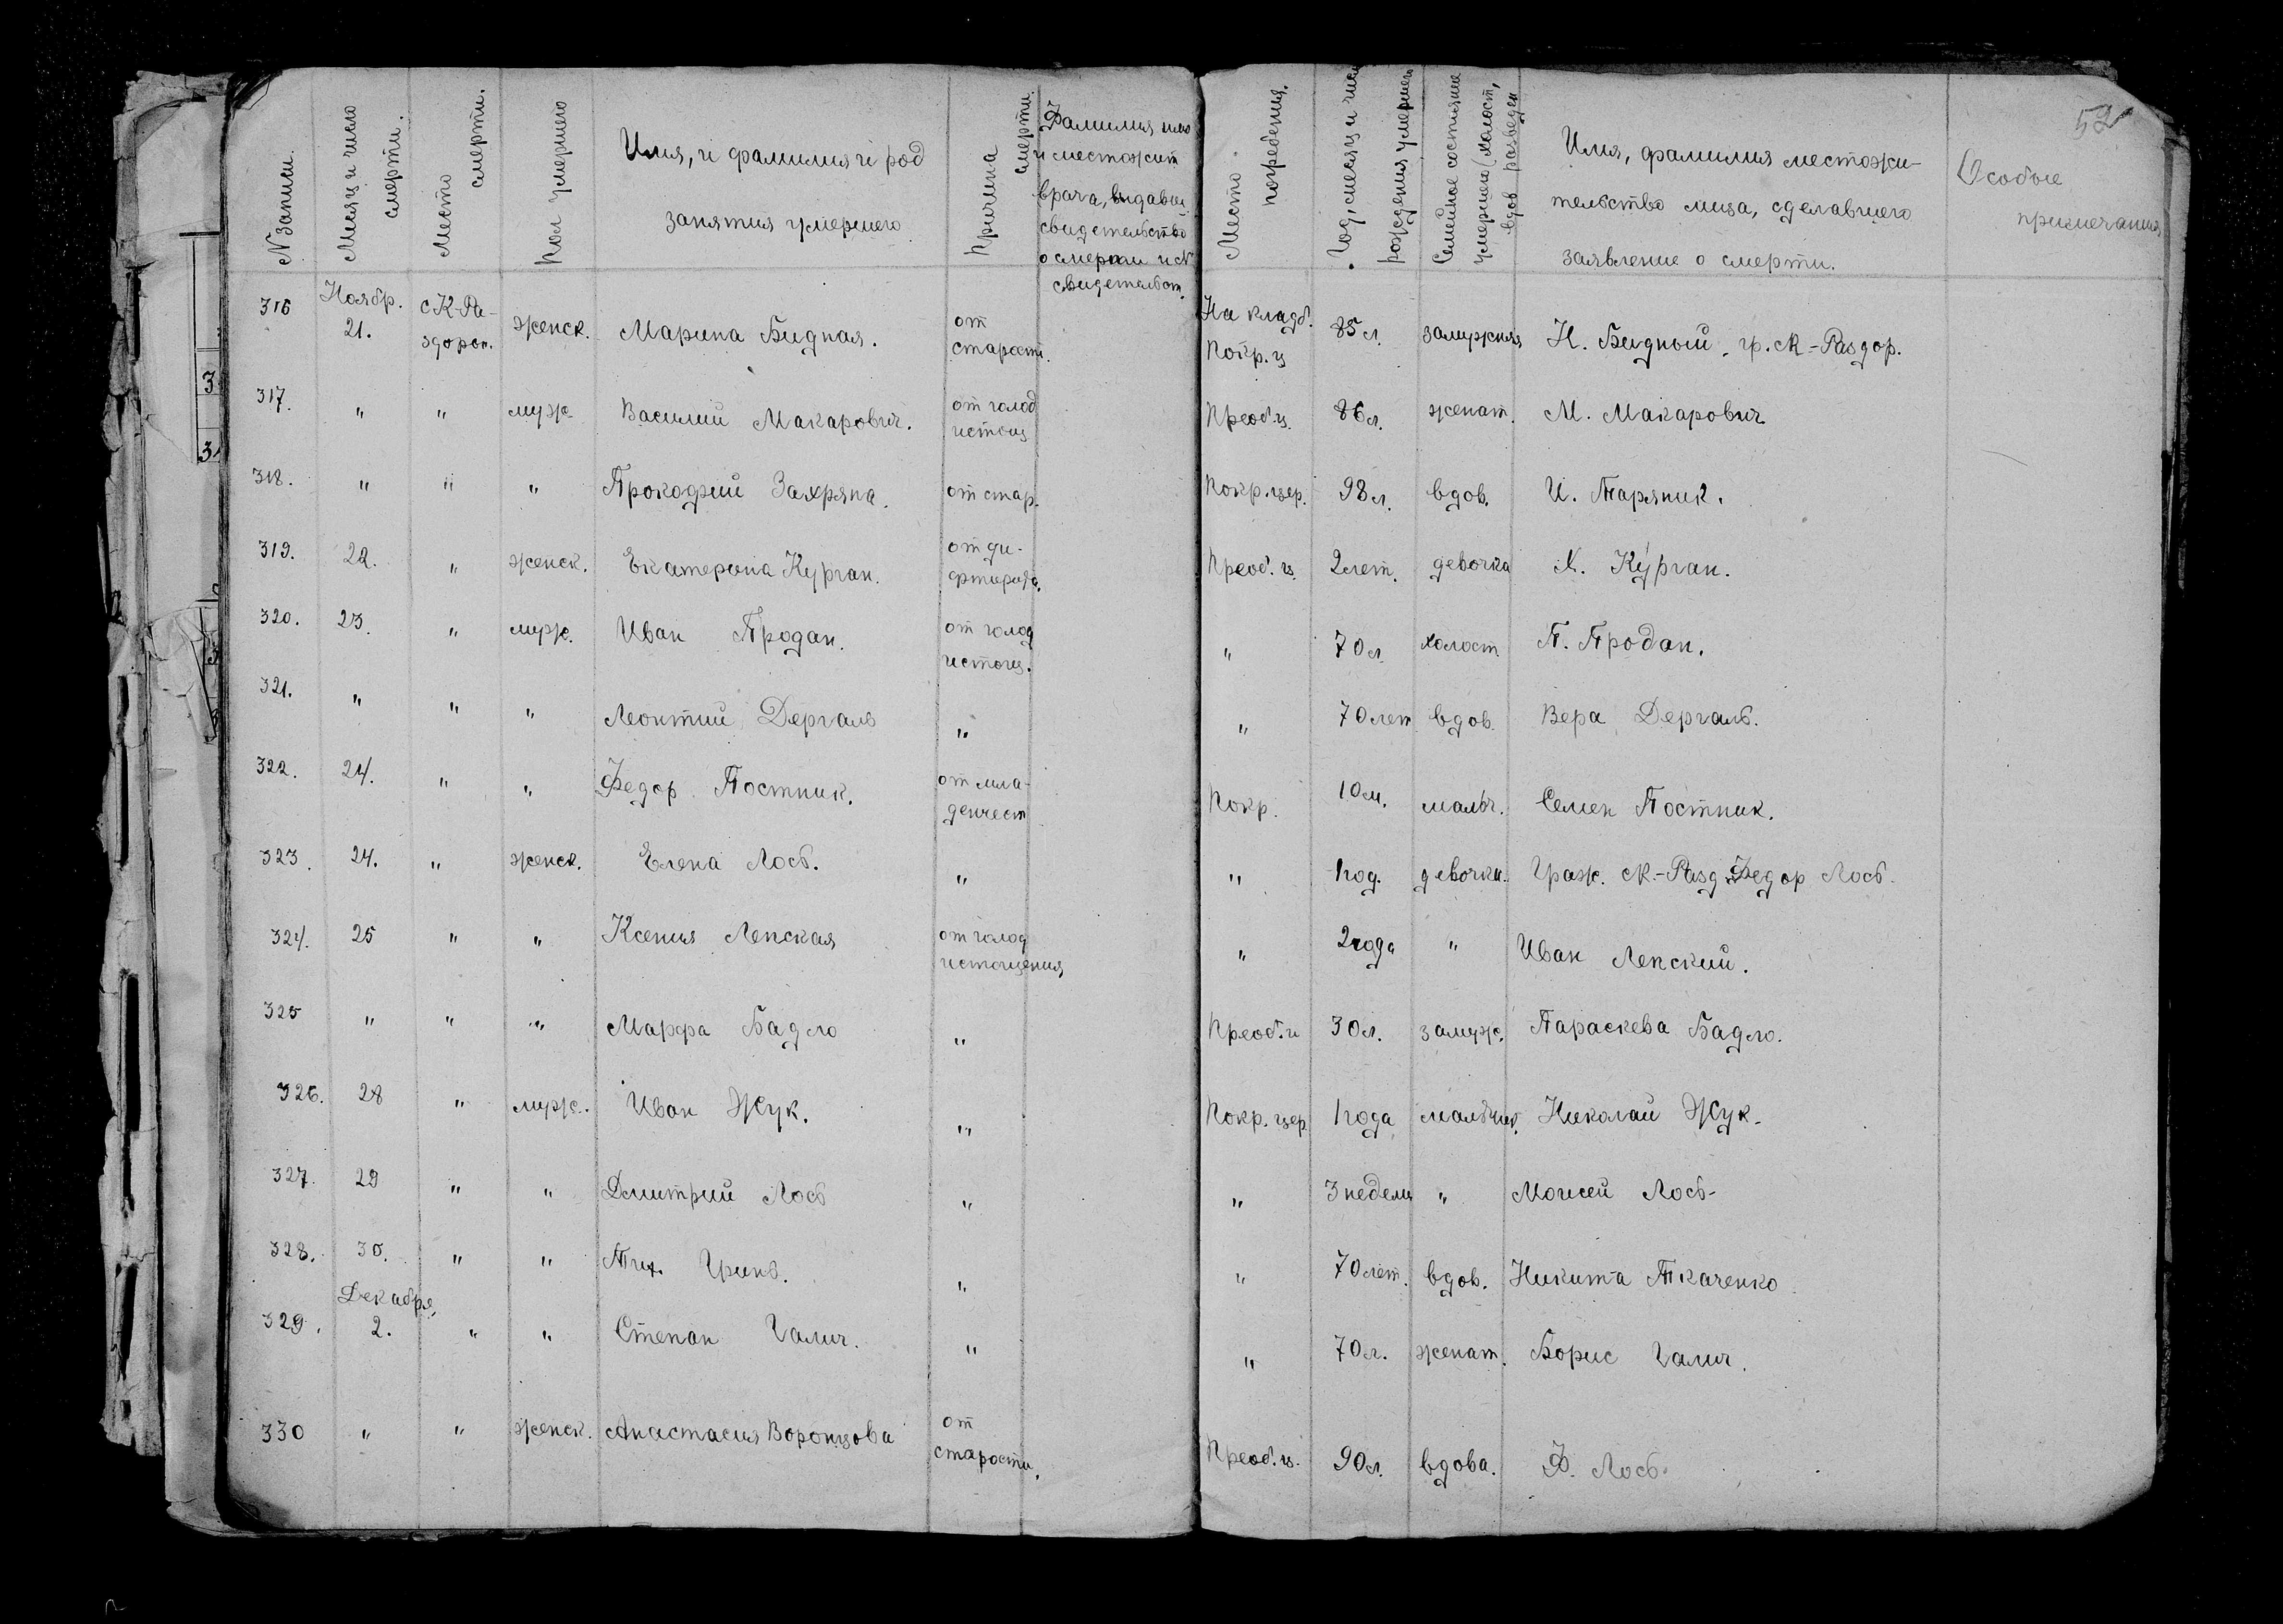 52
№ Записи. Месяц и число смерти. Место смерти. Пол умершего Имя, и фамилия и род занятия умершего Причина смерти. Фамилия или и местожит врача, выдавш. свидетельство о смерти и № свидетельст. Место погребения. Год, месяц и число рождения умершего Семейное состояние умершего (холост, вдов разведен Имя, фамилия местожи- тельство лица, сделавшего заявление о смерти. Особые примечания
316 Ноябр. 21. с К-Ра- здорск. женск. Марина Бидная. от старости. На кладб. Покр. ц 85 л. замужняя Н. Бидный, гр. с К-Раздор.
317. " " муж. Василий Макарович. от голод истощ Преоб. ц. 86 л. женат. М. Макарович
318. " " " Прокофий Захряпа. от стар. Покр. цер. 98 л. вдов. И. Таряник.
319. 22. " женск. Екатерина Курган. от ди- фтирита. Преоб. ц. 2 лет. девочка Х. Курган.
320. 23. " муж. Иван Продан. от голод истощ. " 70 л. холост П. Продан.
321. " " " Леонтий Дергаль " " 70 лет вдов. Вера Дергаль.
322. 24. " " Федор Постник. от мла- денчест Покр. 10 м. мальч. Семен Постник.
323. 24. " женск. Елена Лось. " " 1 год. девочка. Граж. с К.-Разд Федор Лось.
324. 25 " " Ксения Лепская от голод истощения " 2 года " Иван Лепский.
325 " " " Марфа Бадло " Преоб. ц 30 л. замуж. Параскева Бадло.
326. 28 " муж. Иван Жук. " Покр. цер 1 года мальчик. Николай Жук.
327. 29 " " Дмитрий Лось " " 3 недели " Моисей Лось
328. 30. " " Тих. Гринь. " " 70 лет. вдов. Никита Ткаченко
329. Декабря, 2. " " Степан Галич. " " 70 л. женат. Борис Галич.
330 " " женск. Анастасия Воронцова от старости. Преоб. ц. 90 л. вдова. Ф. Лось.